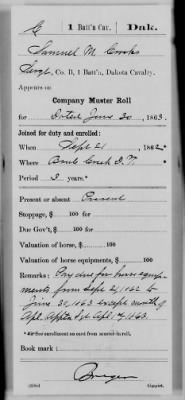 C | 1 Batt'n Cav. | Dak.
Samuel M. Crooks
Sergt., Co. B, 1 Batt'n, Dakota Cavalry.
Appears on
Company Muster Roll
for Dated June 30, 1863.
Joined for duty and enrolled:
When Sept 21, 1862
Where D.T.
Period 3 years.*
Present or absent Present
Stoppage, $ 100 for
Due Gov't, $ 100 for
Valuation of horse, $ 100
Valuation of horse equipments, $ 100
Remarks: Pay due for horse equip-
ments from Sept 21/1862 to
June 30, 1863 except month of
Apl. Apptd Sgt Apl. 1863.
* See enrollment on card from muster-in roll.
Book mark:
(358c) Copyist.